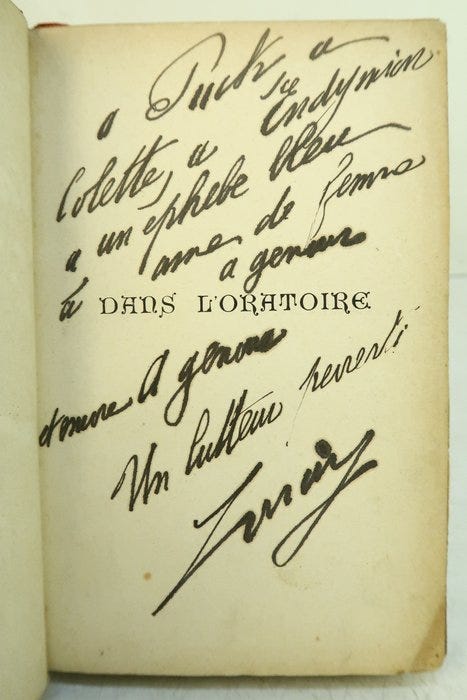 a Puck a
Colette, a Endymion
a un ephebe bleu
à ame de femme
a genoux
DANS L'ORATOIRE
et encore A genoux
Un lutteur perverti
Lorrain